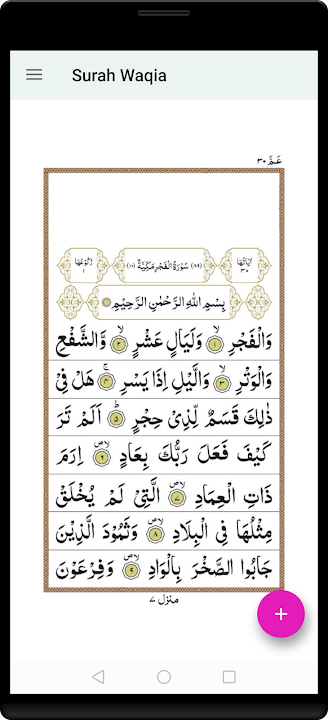 Surah Waqia
عَمَّ ٣٠
اٰيَاتُهَا ٣٠
(٨٩) سُوْرَةُ الْفَجْرِ مَكِّيَّةٌ (١٠)
رُكُوْعُهَا ١
بِسْمِ اللّٰهِ الرَّحْمٰنِ الرَّحِيْمِ
وَالْفَجْرِ ۙ‏ ١ وَلَيَالٍ عَشْرٍ ۙ‏ ٢ وَّالشَّفْعِ
وَالْوَتْرِ ۙ‏ ٣ وَالَّيْلِ اِذَا يَسْرِ ۚ‏ ٤ هَلْ فِيْ
ذٰلِكَ قَسَمٌ لِّذِيْ حِجْرٍ ؕ‏ ٥ اَلَمْ تَرَ
كَيْفَ فَعَلَ رَبُّكَ بِعَادٍ ۙ‏ ٦ اِرَمَ
ذَاتِ الْعِمَادِ ۙ‏ ٧ الَّتِيْ لَمْ يُخْلَقْ
مِثْلُهَا فِي الْبِلَادِ ۙ‏ ٨ وَثَمُوْدَ الَّذِيْنَ
جَابُوا الصَّخْرَ بِالْوَادِ ۙ‏ ٩ وَفِرْعَوْنَ
منزل ٧
+